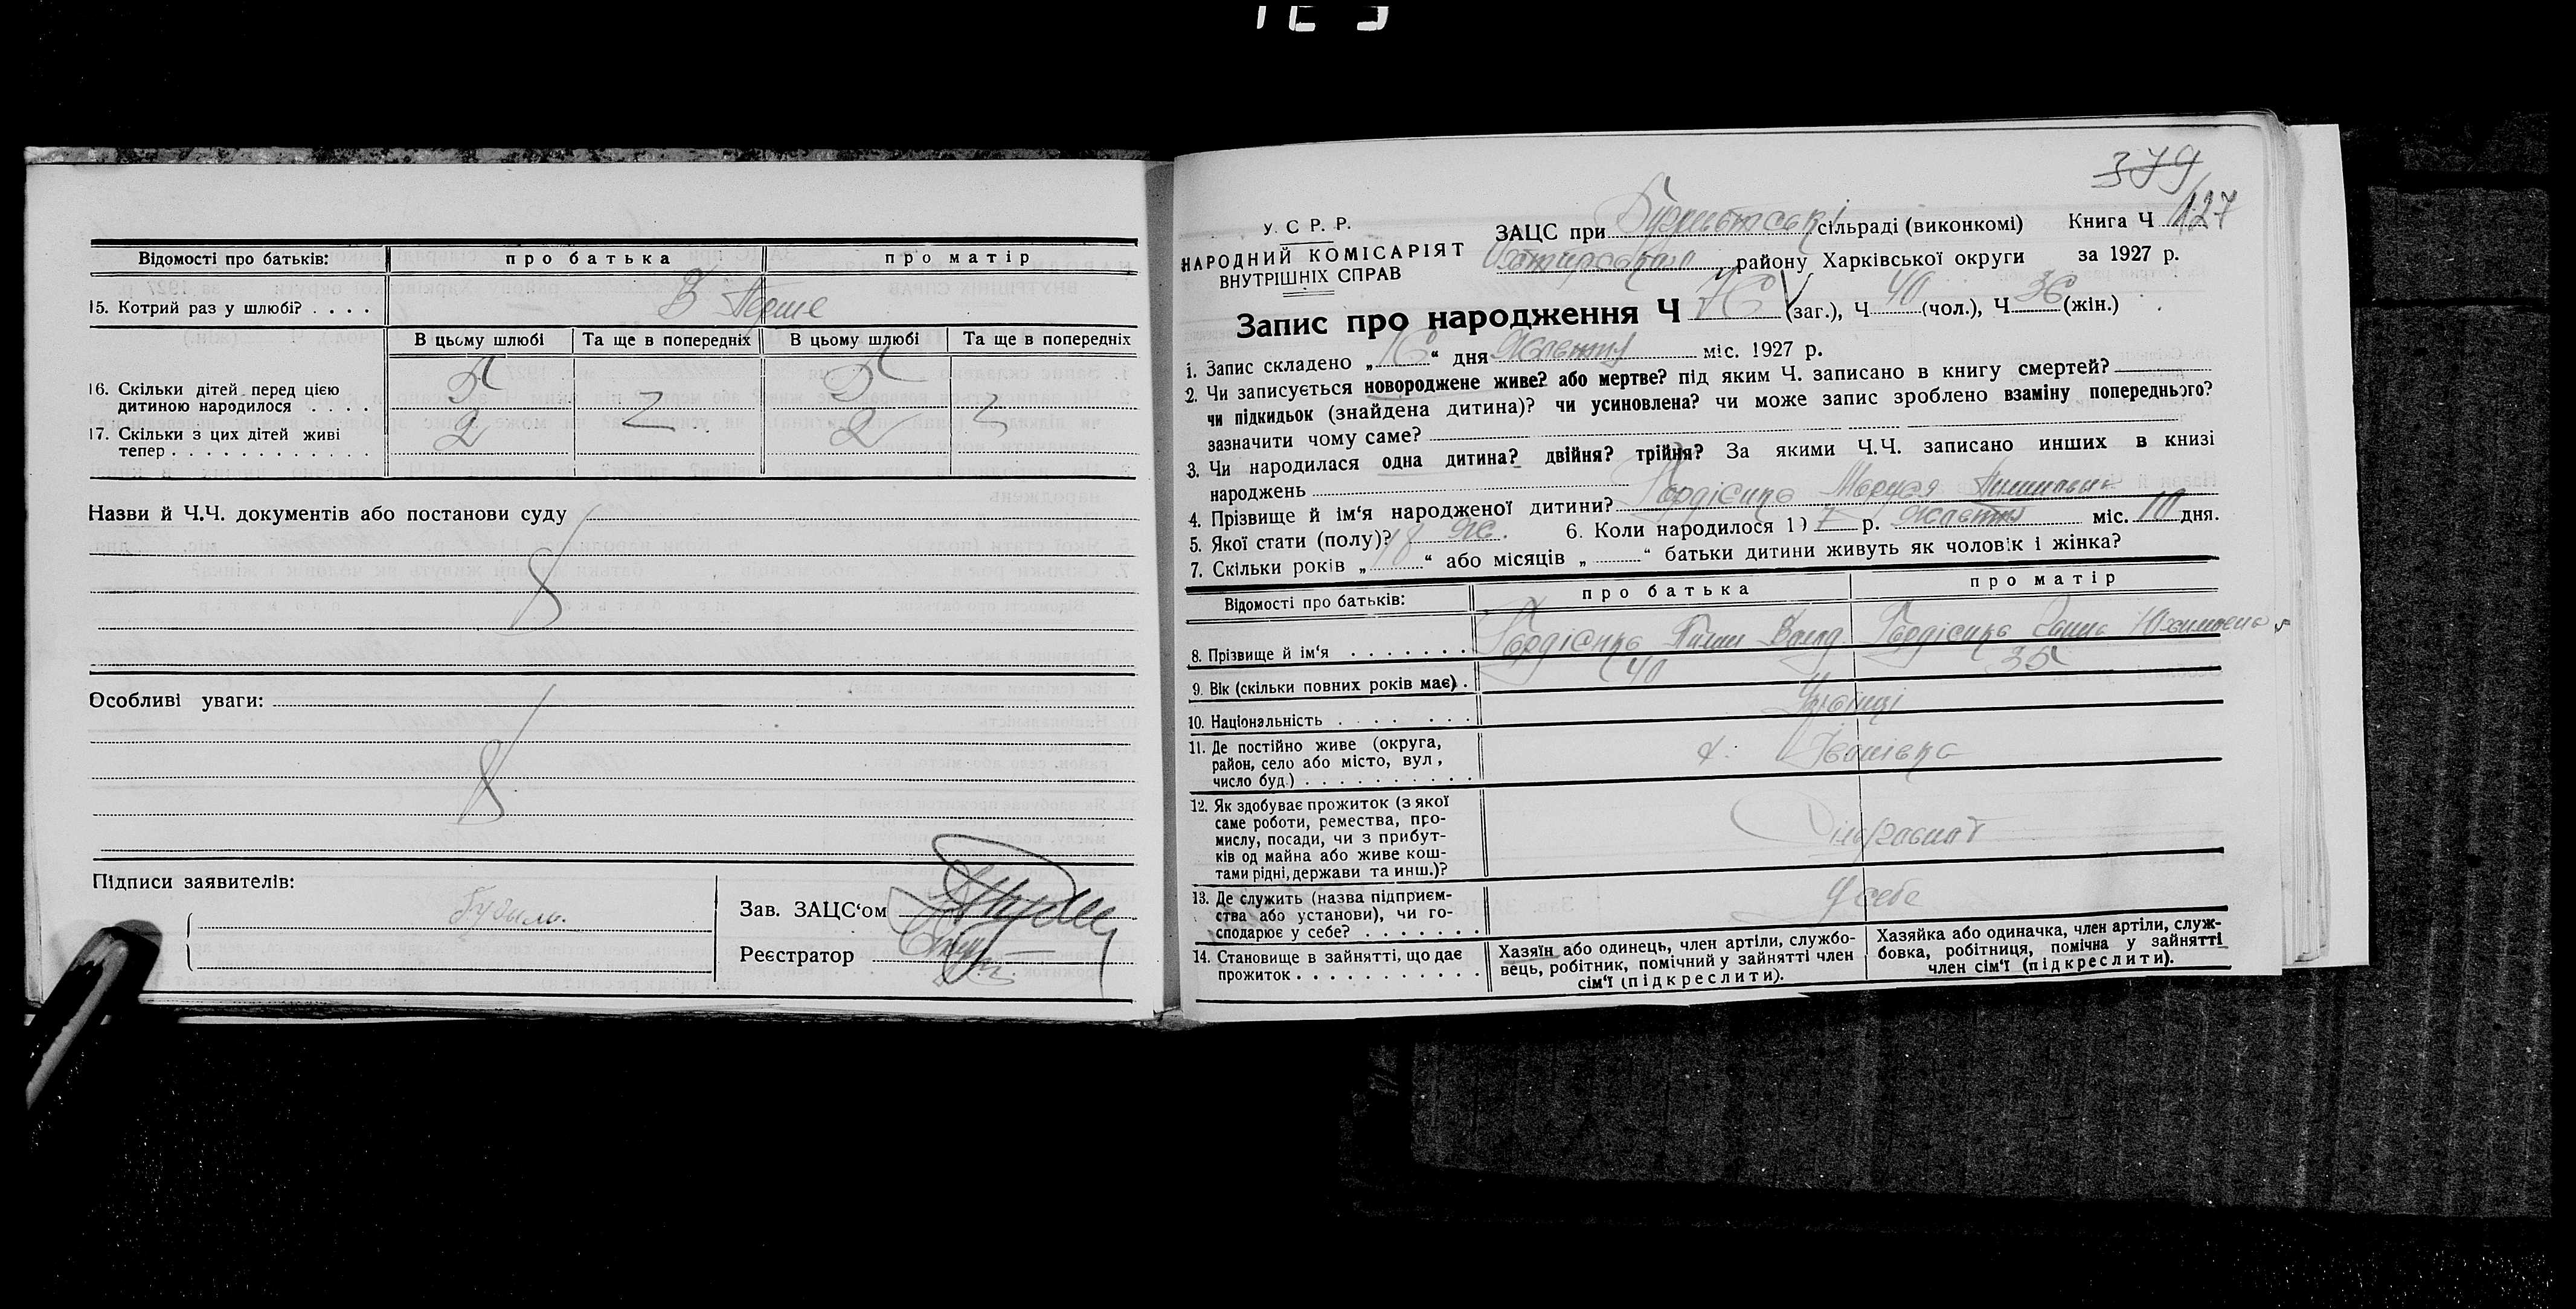 Відомості про батьків: про батька про матір
15. Котрий раз у шлюбі? . . . . В перше
В цьому шлюбі Та ще в попередніх В цьому шлюбі Та ще в попередніх
16. Скільки дітей перед цією 5 5
дитиною народилося . . . .
17. Скільки з цих дітей живі 2 2
тепер . . . . . . . . . . . .
Назви й Ч.Ч. документів або постанови суду
Особливі уваги:
Підписи заявителів:
Зав. ЗАЦС‘ом
Реєстратор
379
127
У. С Р. Р.
НАРОДНИЙ КОМІСАРІЯТ
ВНУТРІШНІХ СПРАВ
ЗАЦС при сільраді (виконкомі) Книга Ч
району Харківської округи за 1927 р.
Запис про народження Ч 76 (заг.), Ч 40 (чол.), Ч 36 (жін.)
1. Запис складено „16“ дня Жовтня міс. 1927 р.
2. Чи записується новороджене живе? або мертве? під яким Ч. записано в книгу смертей?
чи підкидьок (знайдена дитина)? чи усиновлена? чи може запис зроблено взаміну попереднього?
зазначити чому саме?
3. Чи народилася одна дитина? двійня? трійня? За якими Ч.Ч. записано инших в книзі
народжень
4. Прізвище й ім‘я народженої дитини? Гордієнко Маруся
5. Якої стати (полу)? Ж. 6. Коли народилося 19 7 р. Жовтня міс. 10 дня.
7. Скільки років „18“ або місяців „ “ батьки дитини живуть як чоловік і жінка?
Відомості про батьків: про батька про матір
8. Прізвище й ім‘я . . . . . . . Гордієнко Гордієнко Ганна Юхимовна
9. Вік (скільки повних років має) . 40 35
10. Національність . . . . . . . Українці
11. Де постійно живе (округа,
район, село або місто, вул, х. Іванівка
число буд.) . . . . . . . . . .
12. Як здобуває прожиток (з якої
саме роботи, ремества, про-
мислу, посади, чи з прибут-
ків од майна або живе кош-
тами рідні, держави та инш.)?
13. Де служить (назва підприєм-
ства або установи), чи го- У себе
сподарює у себе? . . . . . . .
14. Становище в зайнятті, що дає
прожиток . . . . . . . . . . .
Хазяїн або одинець, член артіли, службо-
вець, робітник, помічний у зайнятті член
сім‘ї (підкреслити).
Хазяйка або одиначка, член артіли, служ-
бовка, робітниця, помічна у зайнятті
член сім‘ї (підкреслити).